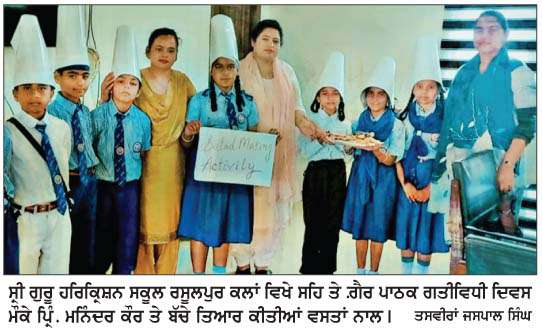 Salad Making
Activity
ਸ੍ਰੀ ਗੁਰੂ ਹਰਿਕ੍ਰਿਸ਼ਨ ਸਕੂਲ ਰਸੂਲਪੁਰ ਕਲਾਂ ਵਿਖੇ ਸਹਿ ਤੇ ਗ਼ੈਰ ਪਾਠਕ ਗਤੀਵਿਧੀ ਦਿਵਸ
ਮੌਕੇ ਪ੍ਰਿੰ. ਮਨਿੰਦਰ ਕੌਰ ਤੇ ਬੱਚੇ ਤਿਆਰ ਕੀਤੀਆਂ ਵਸਤਾਂ ਨਾਲ। ਤਸਵੀਰਾਂ ਜਸਪਾਲ ਸਿੰਘ